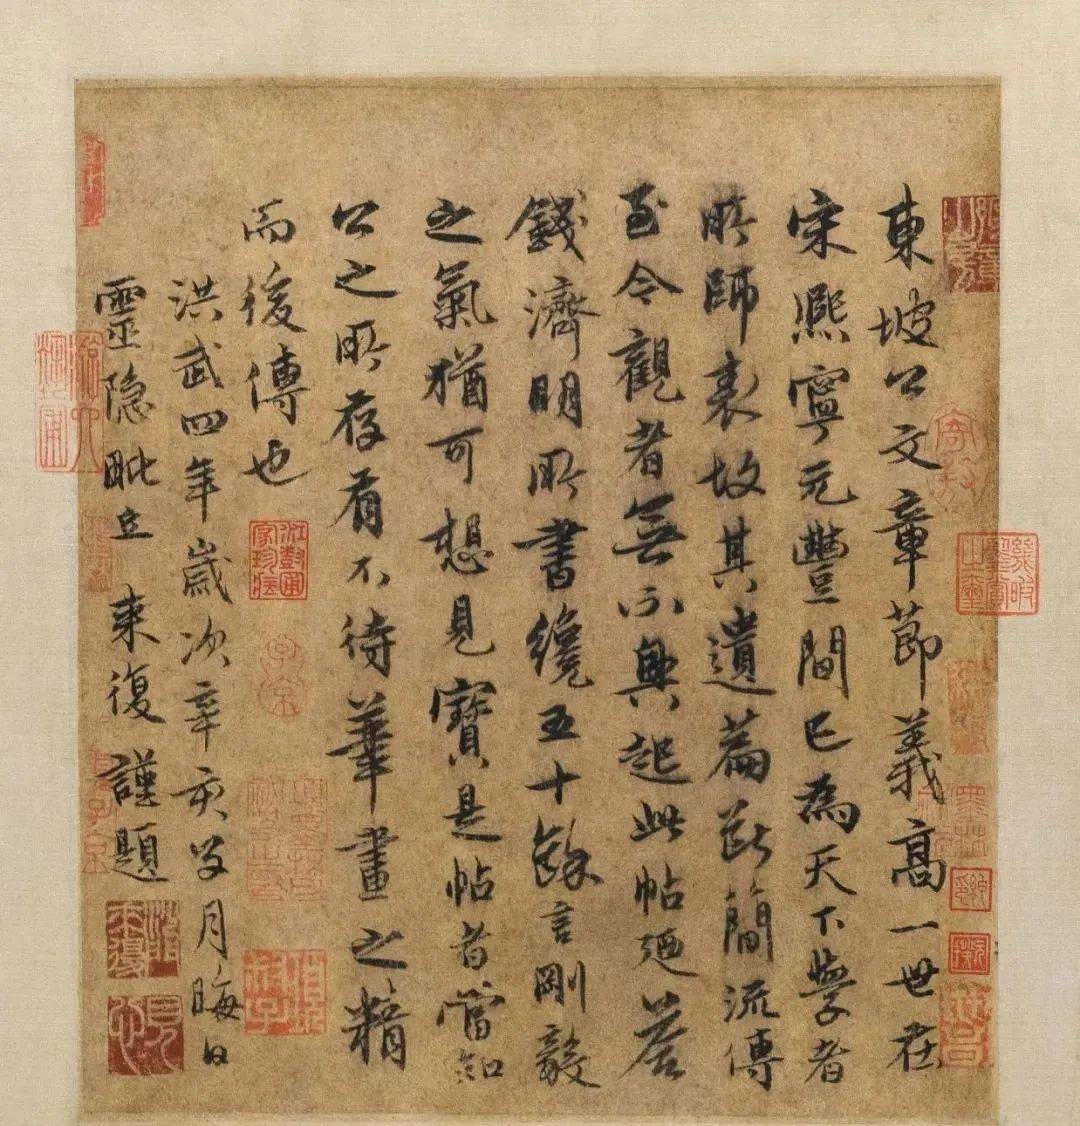 東坡公文章節義高一世在
宋熙寧元豐間已為天下學者
所師表故其遺篇斷簡流傳
至今觀者無不興起此帖廼答
錢濟明所書纔五十餘言剛毅
之氣猶可想見寶是帖者當知
公之所存有不待華畫之精
而後傳也
洪武四年歲次辛亥 月晦日
靈隐 丘來復謹題